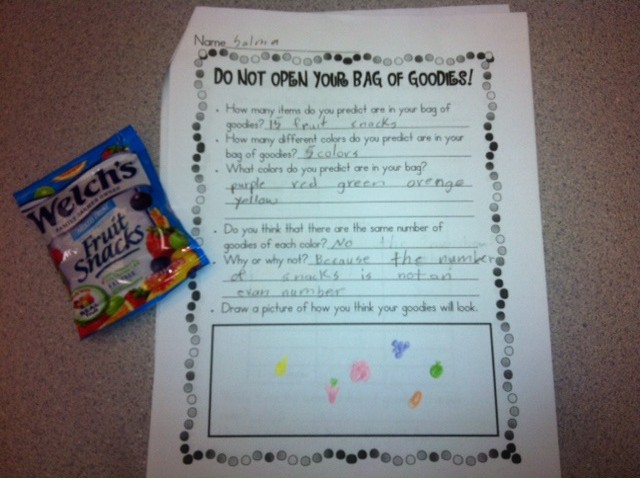 Name Salma
DO NOT OPEN YOUR BAG OF GOODIES!
• How many items do you predict are in your bag of
goodies? 15 fruit snacks
• How many different colors do you predict are in your
bag of goodies? 5 colors
• What colors do you predict are in your bag?
purple red green orenge
yellow
• Do you think that there are the same number of
goodies of each color? No
• Why or why not? Because the number
of snacks is not an
evan number
• Draw a picture of how you think your goodies will look.
Welch's
Fruit
Snacks